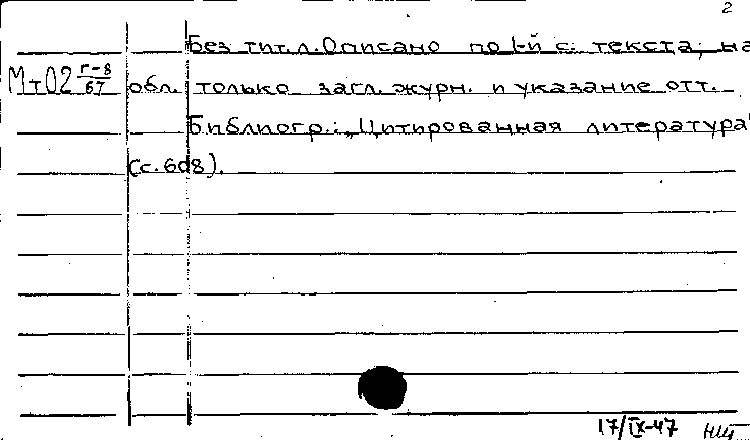 2
Без тит.л. Описано по 1-й с. текста, на
МтО2 г-8/67 обл. только загл. журн. и указание отт.
Библиогр.: „Цитированная литература"
(с. 608).
17/IX-47